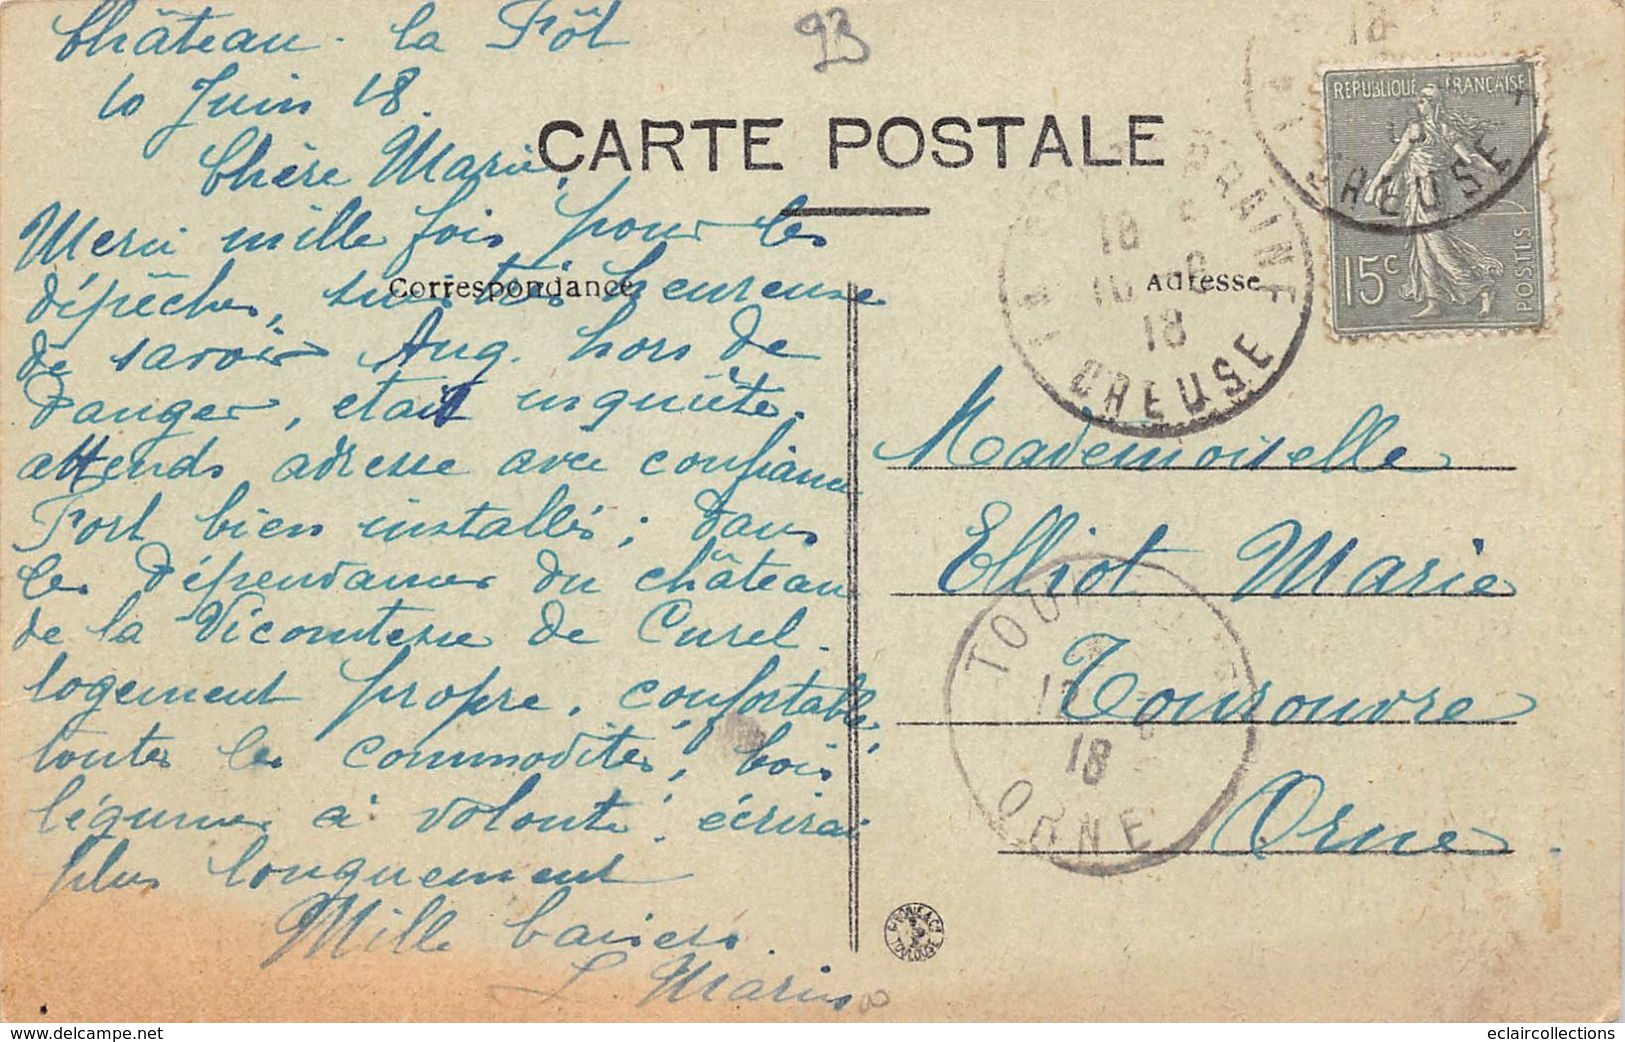 Château - la Fôt
10 Juin 18.
93
CARTE POSTALE
Chère Marie,
Merci mille fois pour les
dépêches, suis très heureuse
de savoir Aug. hors de
danger, étais inquiète.
attends adresse avec confiance
Fort bien installés; dans
les dépendances du château
de la Vicomtesse de Curel.
logement propre, confortable,
toutes les commodités, bois
légumes à volonté. écrirai
plus longuement
Mille baisers.
L Marin
Correspondance
Adresse
RÉPUBLIQUE FRANÇAISE
15c
POSTES
CREUSE
18
CREUSE
18
Mademoiselle
Elliot Marie
Tourouvre
Orne
18
ORNE
PHOTOTYPIE & Cie
TOULOUSE
eclaircollections